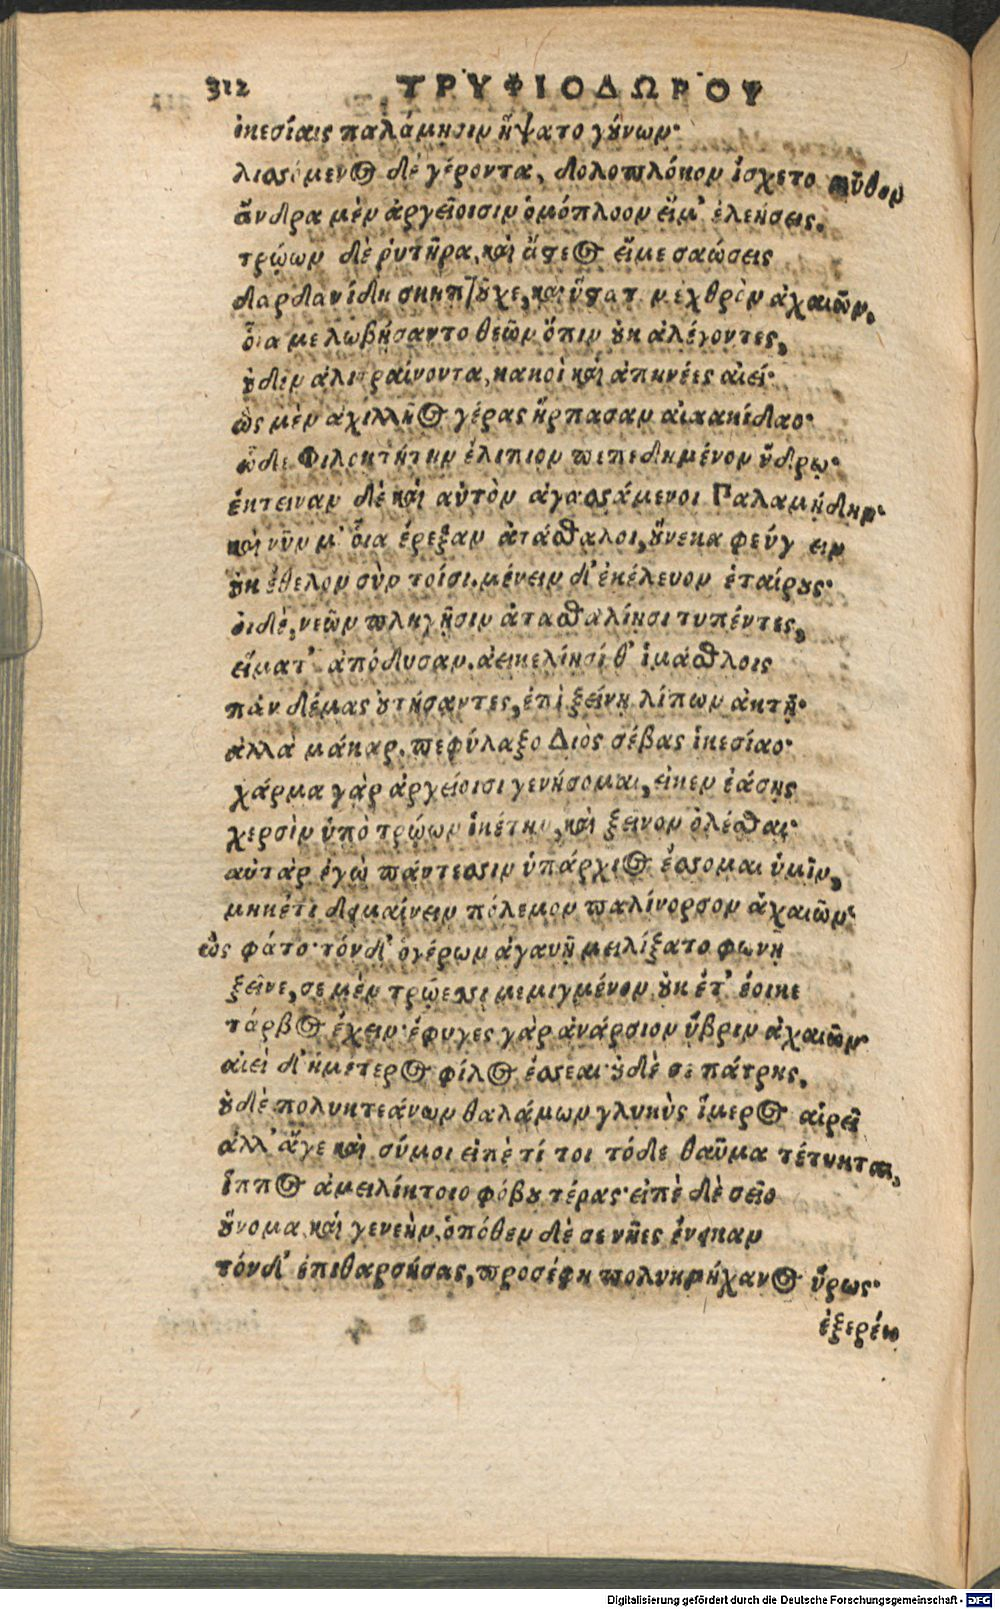 312 ΤΡΥΦΙΟΔΩΡΟΥ
ἱκεσίαις παλάμῃσιν ἥψατο γούνων·
λισσόμενος δὲ γέροντα, δολοπλόκον ἴσχετο μῦθον
ἄνδρα μὲν ἀργείοισιν ὁμόπλοον εἴμ' ἐλεήσεις.
τρώων δὲ ῥυτῆρα, καὶ ἄστεος εἴμε σαώσεις
δαρδανίδη σκηπτοῦχε, καὶ ὕστατον ἐχθρὸν ἀχαιῶν.
οἷα με λωβήσαντο θεῶν ὄπιν οὐκ ἀλέγοντες,
οὐδὲν ἀλιτραίνοντα, κακοὶ καὶ ἀπηνέες αἰεί·
ὣς μὲν ἀχιλλῆος γέρας ἥρπασαν αἰακίδαο·
ὧδε Φιλοκτήτην ἔλιπιον πεπεδημένον ὕδρῳ·
ἔκτειναν δὲ καὶ αὐτὸν ἀγασσάμενοι Παλαμήδην·
καὶ νῦν μ' οἷα ἔρεξαν ἀτάσθαλοι, οὕνεκα φεύγειν
οὐκ ἔθελον σὺν τοίσι. μένειν δ' ἐκέλευον ἑταίρους·
οἱ δὲ, νεῶν πληγῇσιν ἀτασθαλίῃσι τυπέντες,
εἵματ' ἀπόδυσαν. ἀεικελίῃσί θ' ἱμάσθλοις
πὰν δέμας οὐτήσαντες, ἐπὶ ξείνῃ λίπων ἀκτῇ·
ἀλλὰ μάκαρ, πεφύλαξο Διὸς σέβας ἱκεσίαο·
χάρμα γὰρ ἀργείοισι γενήσομαι, εἰκεν ἐάσῃς
χερσὶν ὑπὸ τρώων ἱκέτην, καὶ ξεῖνον ὀλέσθαι·
αὐτὰρ ἐγὼ πάντεσσιν ὑπάρκιος ἔσσομαι ὑμῖν,
μηκέτι δειμαίνειν πόλεμον παλίνορσον ἀχαιῶν·
ὣς φάτο· τόνδ' ὁ γέρων ἀγανῇ μειλίξατο φωνῇ
ξεῖνε, σε μὲν τρώεσσι μεμιγμένον, οὐκ ἔτ' ἔοικε
τάρβος ἔχειν· ἔφυγες γὰρ ἀνάρσιον ὕβριν ἀχαιῶν·
αἰεὶ δ' ἡμέτερος φίλος ἔσσεαι· οὐδὲ σε πάτρης.
οὐδὲ πολυκτεάνων θαλάμων γλυκὺς ἵμερος αἱρεῖ
ἀλλ' ἄγε καὶ σύμοι εἰπὲ τί τοι τόδε θαῦμα τέτυκται,
ἵππος ἀμειλίκτοιο φόβου τέρας· εἰπὲ δὲ σεῖο
οὔνομα, καὶ γενεὴν. ὁπόθεν δὲ σε νῆες ἔνεικαν
τόνδ' ἐπιθαρσήσας, προσέφη πολυμήχανος ἥρως·
ἐξερέω
Digitalisierung gefördert durch die Deutsche Forschungsgemeinschaft - DFG